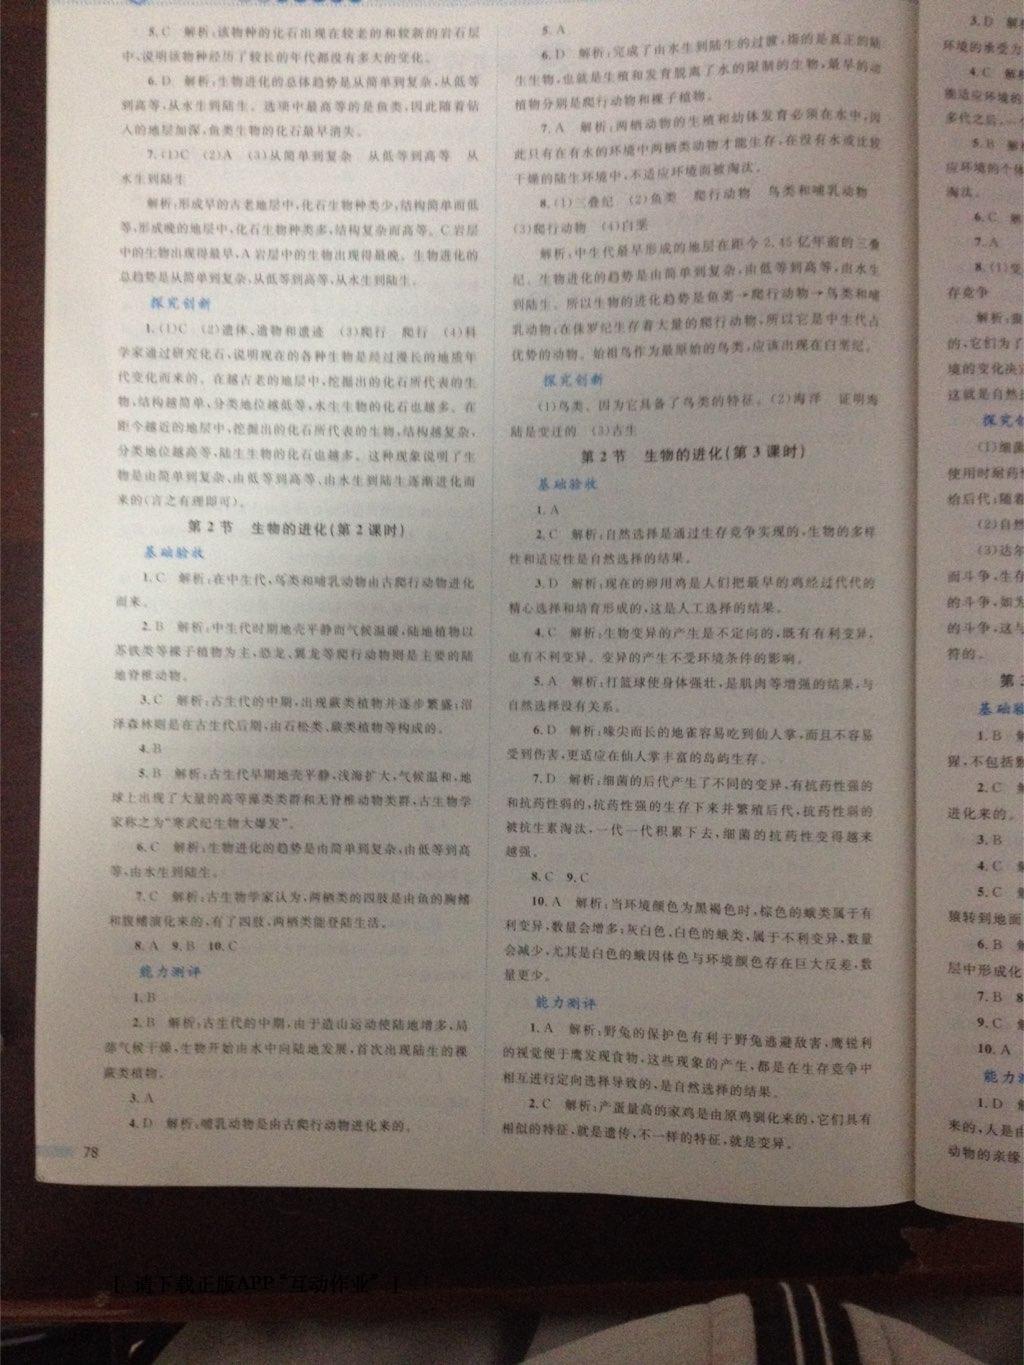 5.C 解析:该物种的化石出现在较老的和较新的岩石层
中,说明该物种经历了较长的年代都没有多大的变化。
6.D 解析:生物进化的总体趋势是从简单到复杂,从低等
到高等,从水生到陆生。选项中最高等的是鱼类,因此随着钻
入的地层加深,鱼类生物的化石最早消失。
7.(1)C (2)A (3)从简单到复杂 从低等到高等 从
水生到陆生
解析:形成早的古老地层中,化石生物种类少,结构简单而低
等,形成晚的地层中,化石生物种类多,结构复杂而高等。C岩层
中的生物出现得最早,A岩层中的生物出现得最晚。生物进化的
总趋势是从简单到复杂,从低等到高等,从水生到陆生。
探究创新
1.(1)C (2)遗体、遗物和遗迹 (3)爬行 爬行 (4)科
学家通过研究化石,说明现在的各种生物是经过漫长的地质年
代变化而来的。在越古老的地层中,挖掘出的化石所代表的生
物,结构越简单、分类地位越低等,水生生物的化石也越多。在
距今越近的地层中,挖掘出的化石所代表的生物,结构越复杂,
分类地位越高等,陆生生物的化石也越多。这种现象说明了生
物是由简单到复杂、由低等到高等、由水生到陆生逐渐进化而
来的(言之有理即可)。
第2节 生物的进化(第2课时)
基础验收
1.C 解析:在中生代,鸟类和哺乳动物由古爬行动物进化
而来。
2.B 解析:中生代时期地壳平静而气候温暖,陆地植物以
苏铁类等裸子植物为主,恐龙、翼龙等爬行动物则是主要的陆
地脊椎动物。
3.C 解析:古生代的中期,出现蕨类植物并逐步繁盛;沼
泽森林则是在古生代后期,由石松类、蕨类植物等构成的。
4.B
5.B 解析:古生代早期地壳平静,浅海扩大,气候温和,地
球上出现了大量的高等藻类类群和无脊椎动物类群,古生物学
家称之为“寒武纪生物大爆发”。
6.C 解析:生物进化的趋势是由简单到复杂,由低等到高
等,由水生到陆生。
7.C 解析:古生物学家认为,两栖类的四肢是由鱼的胸鳍
和腹鳍演化来的,有了四肢,两栖类能登陆生活。
8.A 9.B 10.C
能力测评
1.B
2.B 解析:古生代的中期,由于造山运动使陆地增多,局
部气候干燥,生物开始由水中向陆地发展,首次出现陆生的裸
蕨类植物。
3.A
4.D 解析:哺乳动物是由古爬行动物进化来的。
78
5.A
6.D 解析:完成了由水生到陆生的过渡,指的是真正的陆
生生物,也就是生殖和发育脱离了水的限制的生物,最早的动
植物分别是爬行动物和裸子植物。
7.A 解析:两栖动物的生殖和幼体发育必须在水中,因
此只有在有水的环境中两栖类动物才能生存,在没有水或比较
干燥的陆生环境中,不适应环境而被淘汰。
8.(1)三叠纪 (2)鱼类 爬行动物 鸟类和哺乳动物
(3)爬行动物 (4)白垩
解析:中生代最早形成的地层在距今2.45亿年前的三叠
纪。生物进化的趋势是由简单到复杂,由低等到高等,由水生
到陆生。所以生物的进化趋势是鱼类→爬行动物→鸟类和哺
乳动物;在侏罗纪生存着大量的爬行动物,所以它是中生代占
优势的动物。始祖鸟作为最原始的鸟类,应该出现在白垩纪。
探究创新
(1)鸟类。因为它具备了鸟类的特征。(2)海洋 证明海
陆是变迁的 (3)古生
第2节 生物的进化(第3课时)
基础验收
1.A
2.C 解析:自然选择是通过生存竞争实现的,生物的多样
性和适应性是自然选择的结果。
3.D 解析:现在的卵用鸡是人们把最早的鸡经过代代的
精心选择和培育形成的,这是人工选择的结果。
4.C 解析:生物变异的产生是不定向的,既有有利变异,
也有不利变异。变异的产生不受环境条件的影响。
5.A 解析:打篮球使身体强壮,是肌肉等增强的结果,与
自然选择没有关系。
6.D 解析:喙尖而长的地雀容易吃到仙人掌,而且不容易
受到伤害,更适应在仙人掌丰富的岛屿生存。
7.D 解析:细菌的后代产生了不同的变异,有抗药性强的
和抗药性弱的,抗药性强的生存下来并繁殖后代,抗药性弱的
被抗生素淘汰,一代一代积累下去,细菌的抗药性变得越来
越强。
8.C 9.C
10.A 解析:当环境颜色为黑褐色时,棕色的蛾类属于有
利变异,数量会增多;灰白色、白色的蛾类,属于不利变异,数量
会减少,尤其是白色的蛾因体色与环境颜色存在巨大反差,数
量更少。
能力测评
1.A 解析:野兔的保护色有利于野兔逃避敌害,鹰锐利
的视觉便于鹰发现食物,这些现象的产生,都是在生存竞争中
相互进行定向选择导致的,是自然选择的结果。
2.C 解析:产蛋量高的家鸡是由原鸡驯化来的,它们具有
相似的特征,就是遗传,不一样的特征,就是变异。
3.D 解析
环境的承受力
4.C 解析
能适应环境的
多代之后,一个
5.B 解析
应环境的个体
淘汰。
6.C 解
7.A
8.(1)变
存竞争
解析:
的,它们为了
境的变化决定
这就是自然选
探究创
(1)细菌
使用时耐药性
给后代;随着
(2)自然
(3)达尔
而斗争,生存
的斗争,如为
的斗争,这与
符的。
第3
基础验
1.B 解
猩,不包括
2.C 解
进化来的。
3.B
4.C 解
5.C 解
猿转到地面
6.B 解
层中形成化
7.B 8
9.C 解
10.A
能力测
1.D 解
来的,人是由
动物的亲缘
[ 请下载正版APP“互动作业” ]